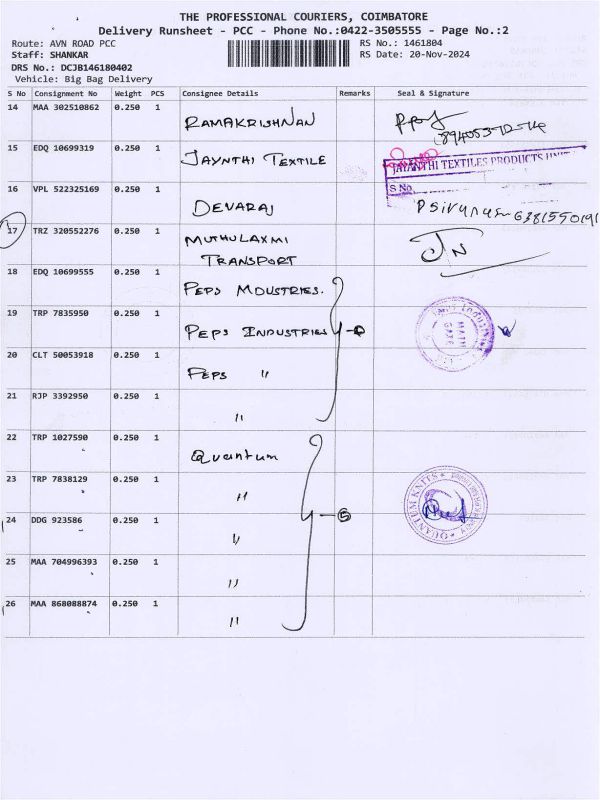 THE PROFESSIONAL COURIERS, COIMBATORE
Delivery Runsheet - PCC - Phone No.:0422-3505555 - Page No.:2
Route: AVN ROAD PCC RS No.: 1461804
Staff: SHANKAR RS Date: 20-Nov-2024
DRS No.: DCJB146180402
Vehicle: Big Bag Delivery
S No Consignment No Weight PCS Consignee Details Remarks Seal & Signature
14 MAA 302510862 0.250 1 RAMAKRISHNAN
15 EDQ 10699319 0.250 1 JAYNTHI TEXTILE JAYANTHI TEXTILES PRODUCTS UNIT
S No.
16 VPL 522325169 0.250 1 DEVARAJ 6381550191
17 TRZ 320552276 0.250 1 MUTHULAXMI JN
TRANSPORT
18 EDQ 10699555 0.250 1 PEPS MDUSTRIES.
19 TRP 7835950 0.250 1 PEPS INDUSTRIES
20 CLT 50053918 0.250 1 PEPS "
21 RJP 3392950 0.250 1 "
22 TRP 1027590 0.250 1 Quantum
23 TRP 7838129 0.250 1 " QUANTUM KNITS
24 DDG 923586 0.250 1 " 5
25 MAA 704996393 0.250 1 "
26 MAA 868088874 0.250 1 "